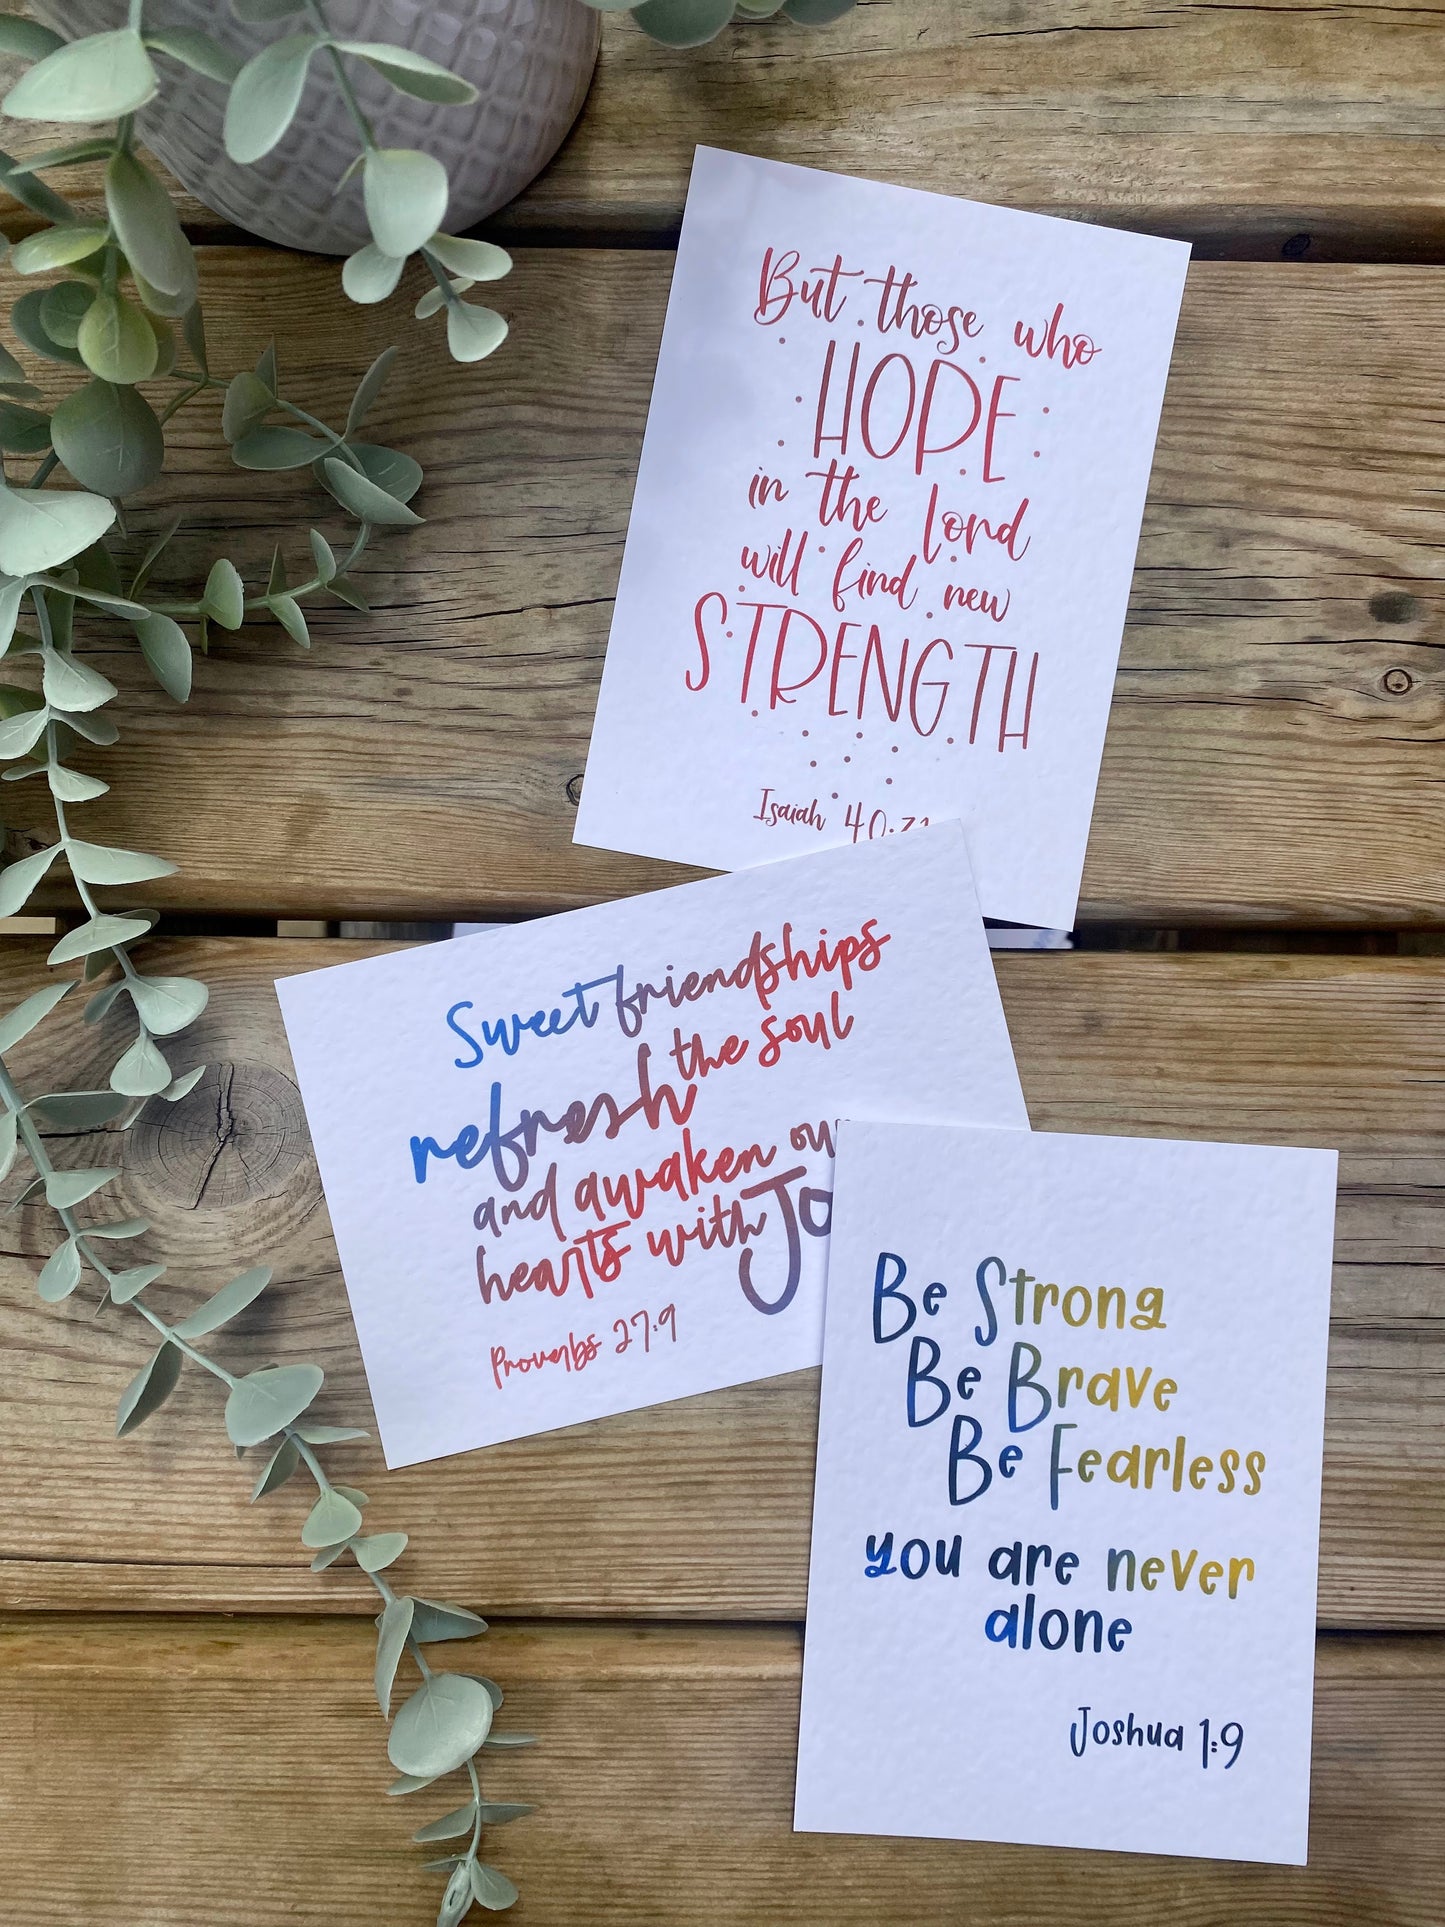 But those who
HOPE
in the lord
will find new
STRENGTH
Isaiah 40:31
Sweet friendships
refresh the soul
and awaken
hearts with
Proverbs 27:9
Be Strong
Be Brave
Be Fearless
you are never
alone
Joshua 1:9